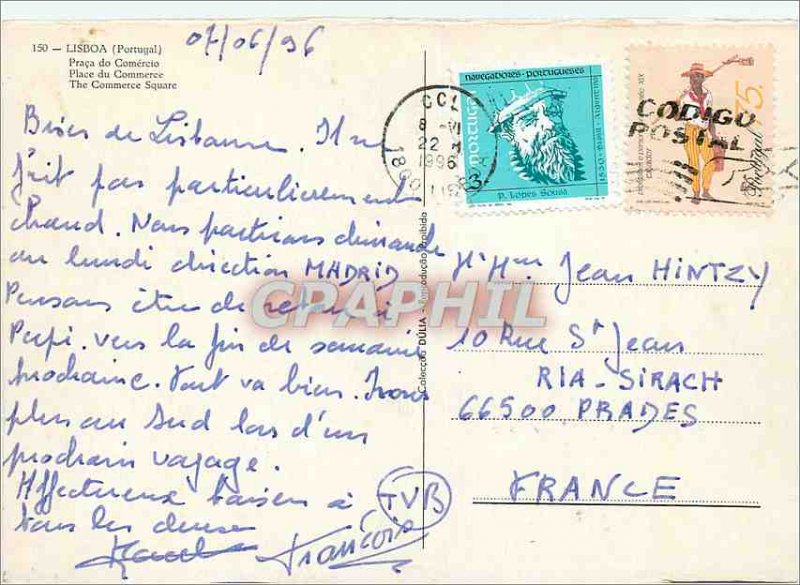 07/06/96
150 — LISBOA (Portugal)
Praça do Comércio
Place du Commerce
The Commerce Square
Bises de Lisbonne. Il ne
fait pas particulièrement
chaud. Nous partirons dimanche
ou lundi direction MADRID
Pensons être de retour
vers la fin de semaine
prochaine. Tout va bien. Irons
plus au Sud lors d'un
prochain voyage.
Affectueux baisers à
tous les deux
François
TVB
Colecção DÚLIA - Reprodução proibida
CCL
8 - VI
22
1996
1800
NAVEGADORES - PORTUGUESES
PORTUGAL
P. LOPES SOUSA
1530 · Brasil · Argentina
CODIGO
POSTAL
75.
Portugal
Jean HINTZY
10 Rue St Jean
RIA-SIRACH
66500 PRADES
FRANCE
CPARPHIL